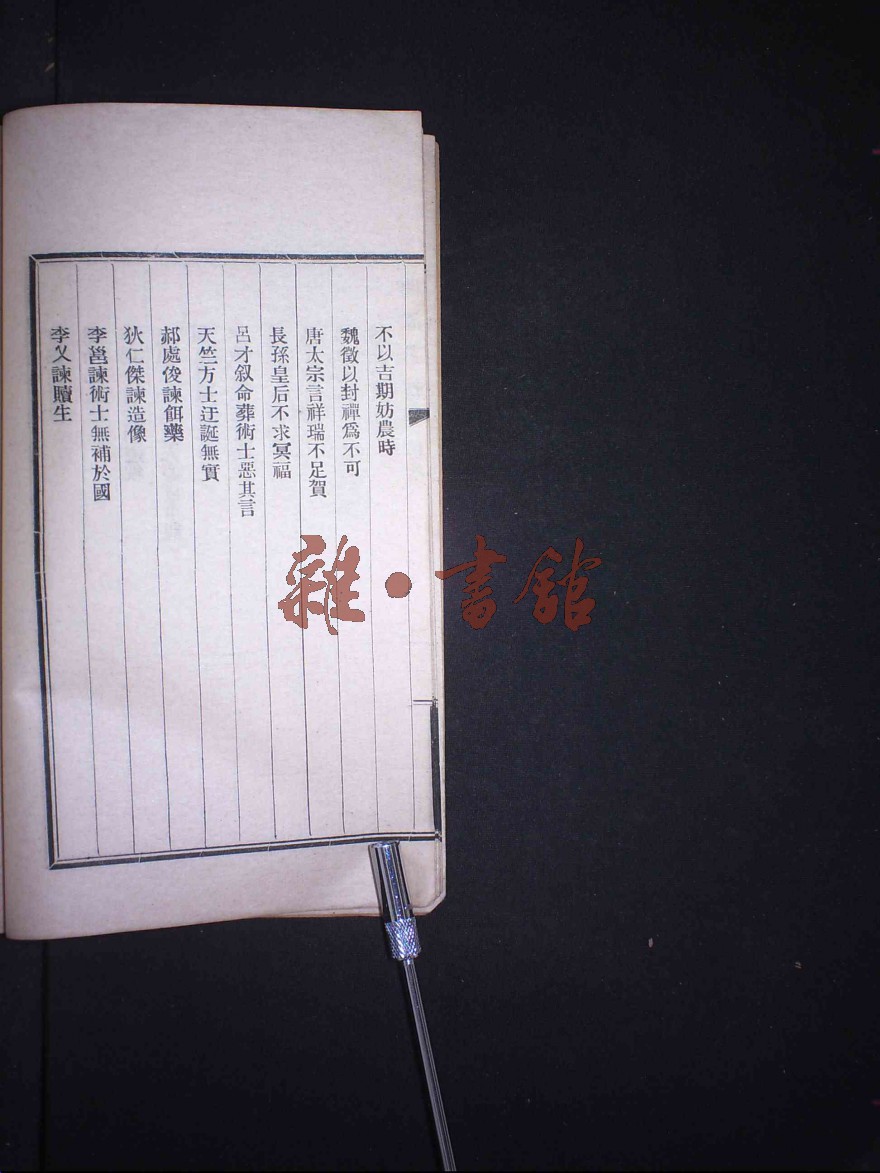 不以吉期妨農時
魏徵以封禪爲不可
唐太宗言祥瑞不足賀
長孫皇后不求冥福
呂才叙命葬術士惡其言
天竺方士迂誕無實
郝處俊諫餌藥
狄仁傑諫造像
李邕諫術士無補於國
李乂諫贖生
雜·書館